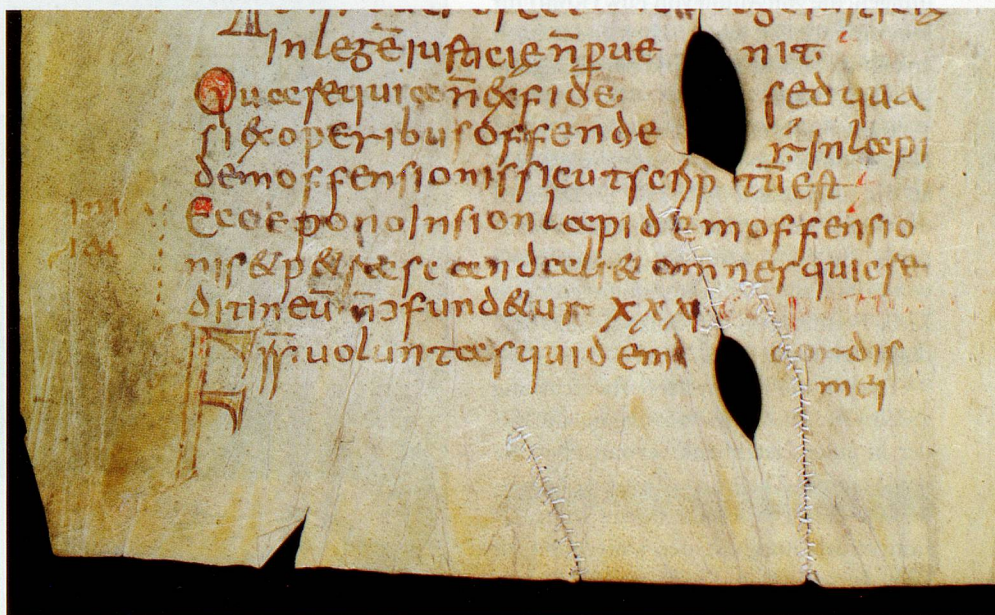 In legē iusticię n̄ ꝑue nit
Quare quia n̄ ex fide sed qua
si ex operibus offende r̄ In lapi
dem offensionis sicut scrip tū est
Ecce pono In sion lapidem offensio
nis & p&ra scandali & omnes qui cre
dit in eū n̄ ↄfund&ur xxxi
Frr̄ uoluntas quidem cordis
mei